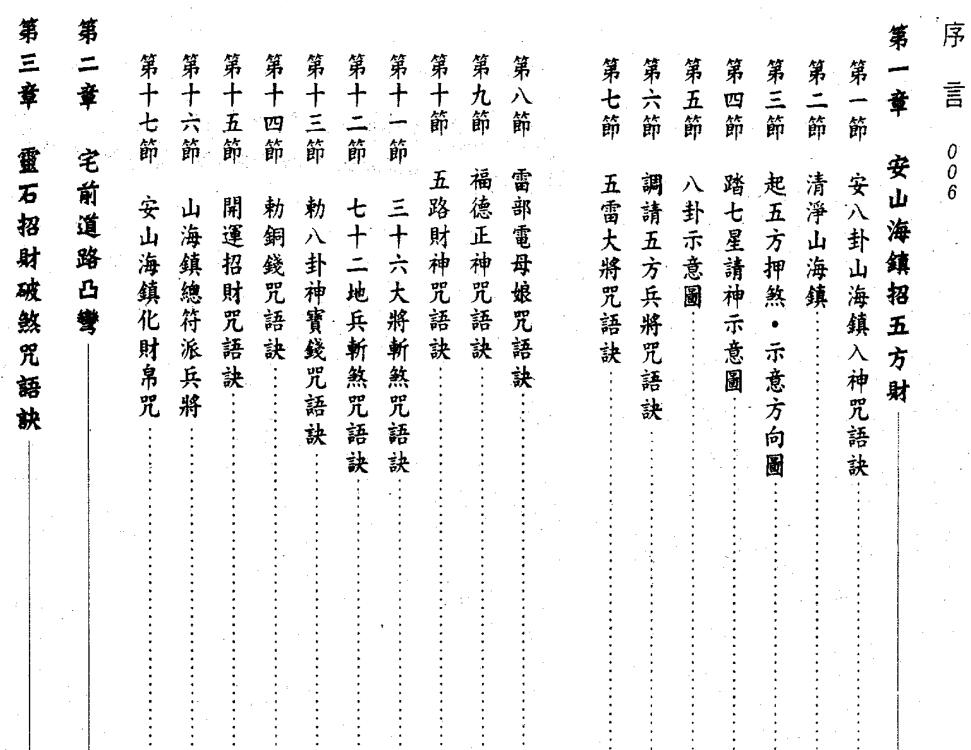 序言 006
第一章 安山海鎮招五方財
第一節 安八卦山海鎮入神咒語訣
第二節 清淨山海鎮
第三節 起五方押煞•示意方向圖
第四節 踏七星請神示意圖
第五節 八卦示意圖
第六節 調請五方兵將咒語訣
第七節 五雷大將咒語訣
第八節 雷部電母娘咒語訣
第九節 福德正神咒語訣
第十節 五路財神咒語訣
第十一節 三十六大將斬煞咒語訣
第十二節 七十二地兵斬煞咒語訣
第十三節 勅八卦神寶錢咒語訣
第十四節 勅銅錢咒語訣
第十五節 開運招財咒語訣
第十六節 山海鎮總符派兵將
第十七節 安山海鎮化財帛咒
第二章 宅前道路凸彎
第三章 靈石招財破煞咒語訣